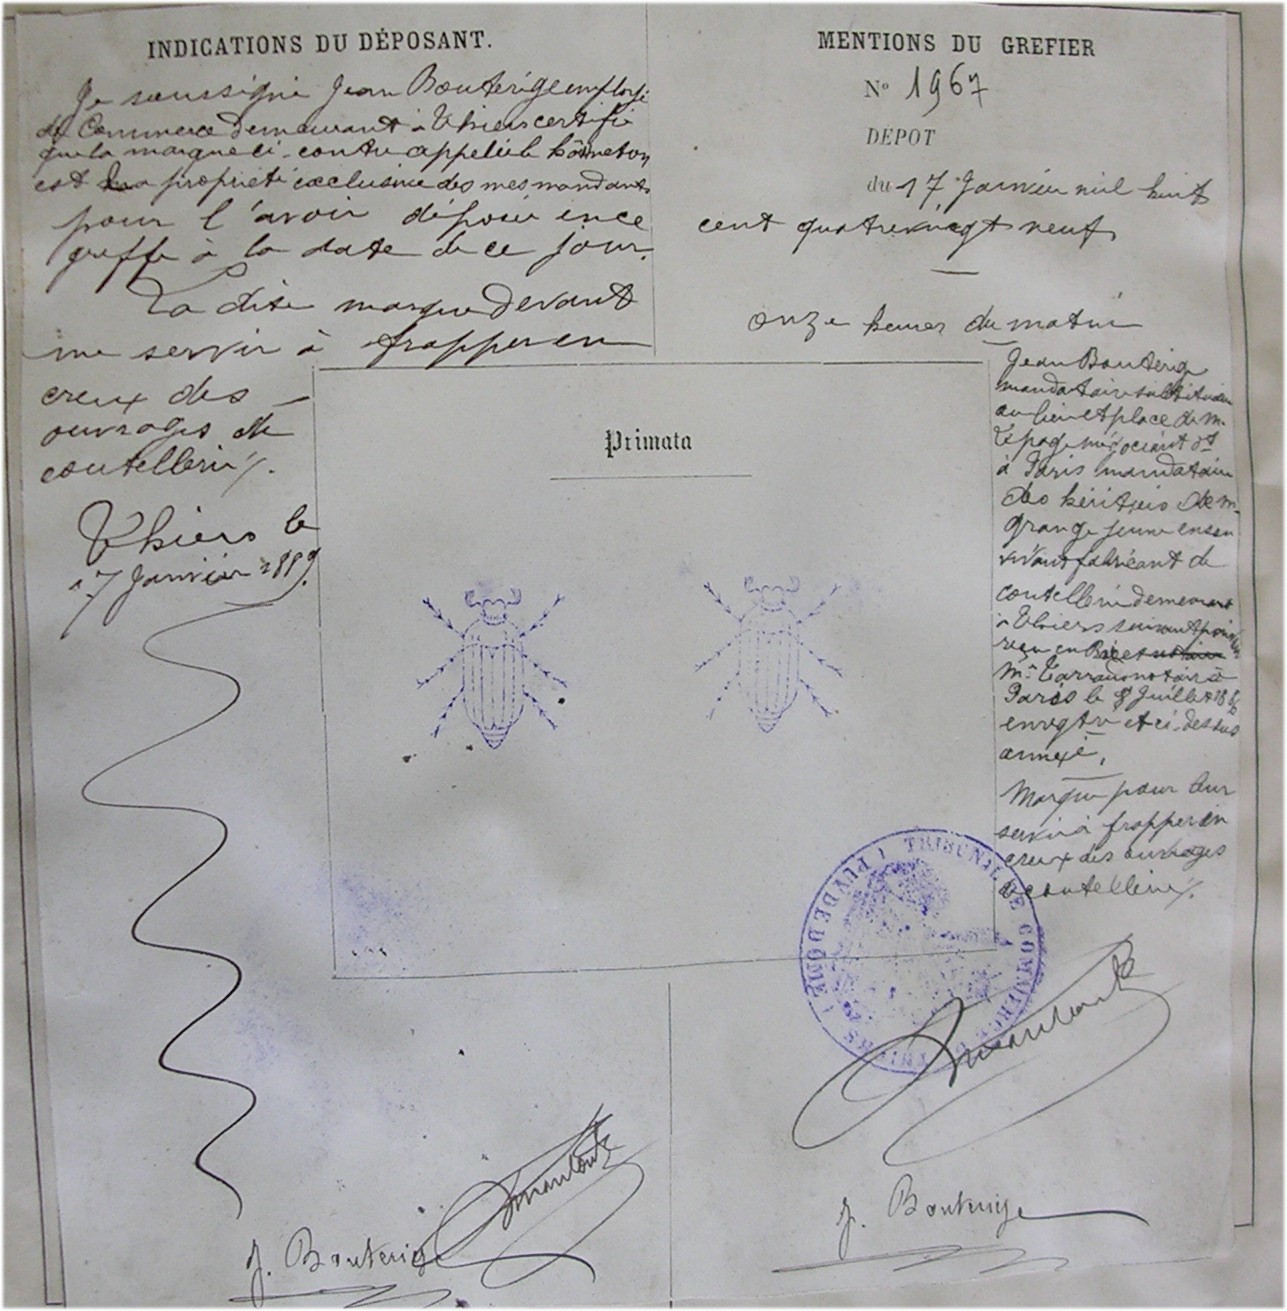 INDICATIONS DU DÉPOSANT.
Je soussigné Jean Bouterige employé
de Commerce demeurant à Thiers certifie
que la marque ci-contre appelée le
est la propriété exclusive des mes mandants
pour l'avoir déposée en ce
greffe à la date de ce jour.
La dite marque devant
me servir à frapper en
creux des
ouvrages de
coutellerie
Thiers le
17 Janvier 1889.
J. Bouterige
MENTIONS DU GREFIER
No 1967
DÉPOT
du 17 Janvier mil huit
cent quatre vingt neuf
onze heures du matin
Primata
Jean Bouterige
mandataire substitué
au lieu et place de M.
Lepage négociant dt
à Paris mandataire
des héritiers de M.
Grange jeune en son
vivant fabricant de
coutellerie demeurant
à Thiers suivant
reçu
Me notaire à
Paris le 8 Juillet
enregtré et ci-dessus
annexé.
Marque pour leur
servir à frapper en
creux des ouvrages
de coutellerie
TRIBUNAL DE COMMERCE DE THIERS ( PUY DE DOME )
J. Bouterige